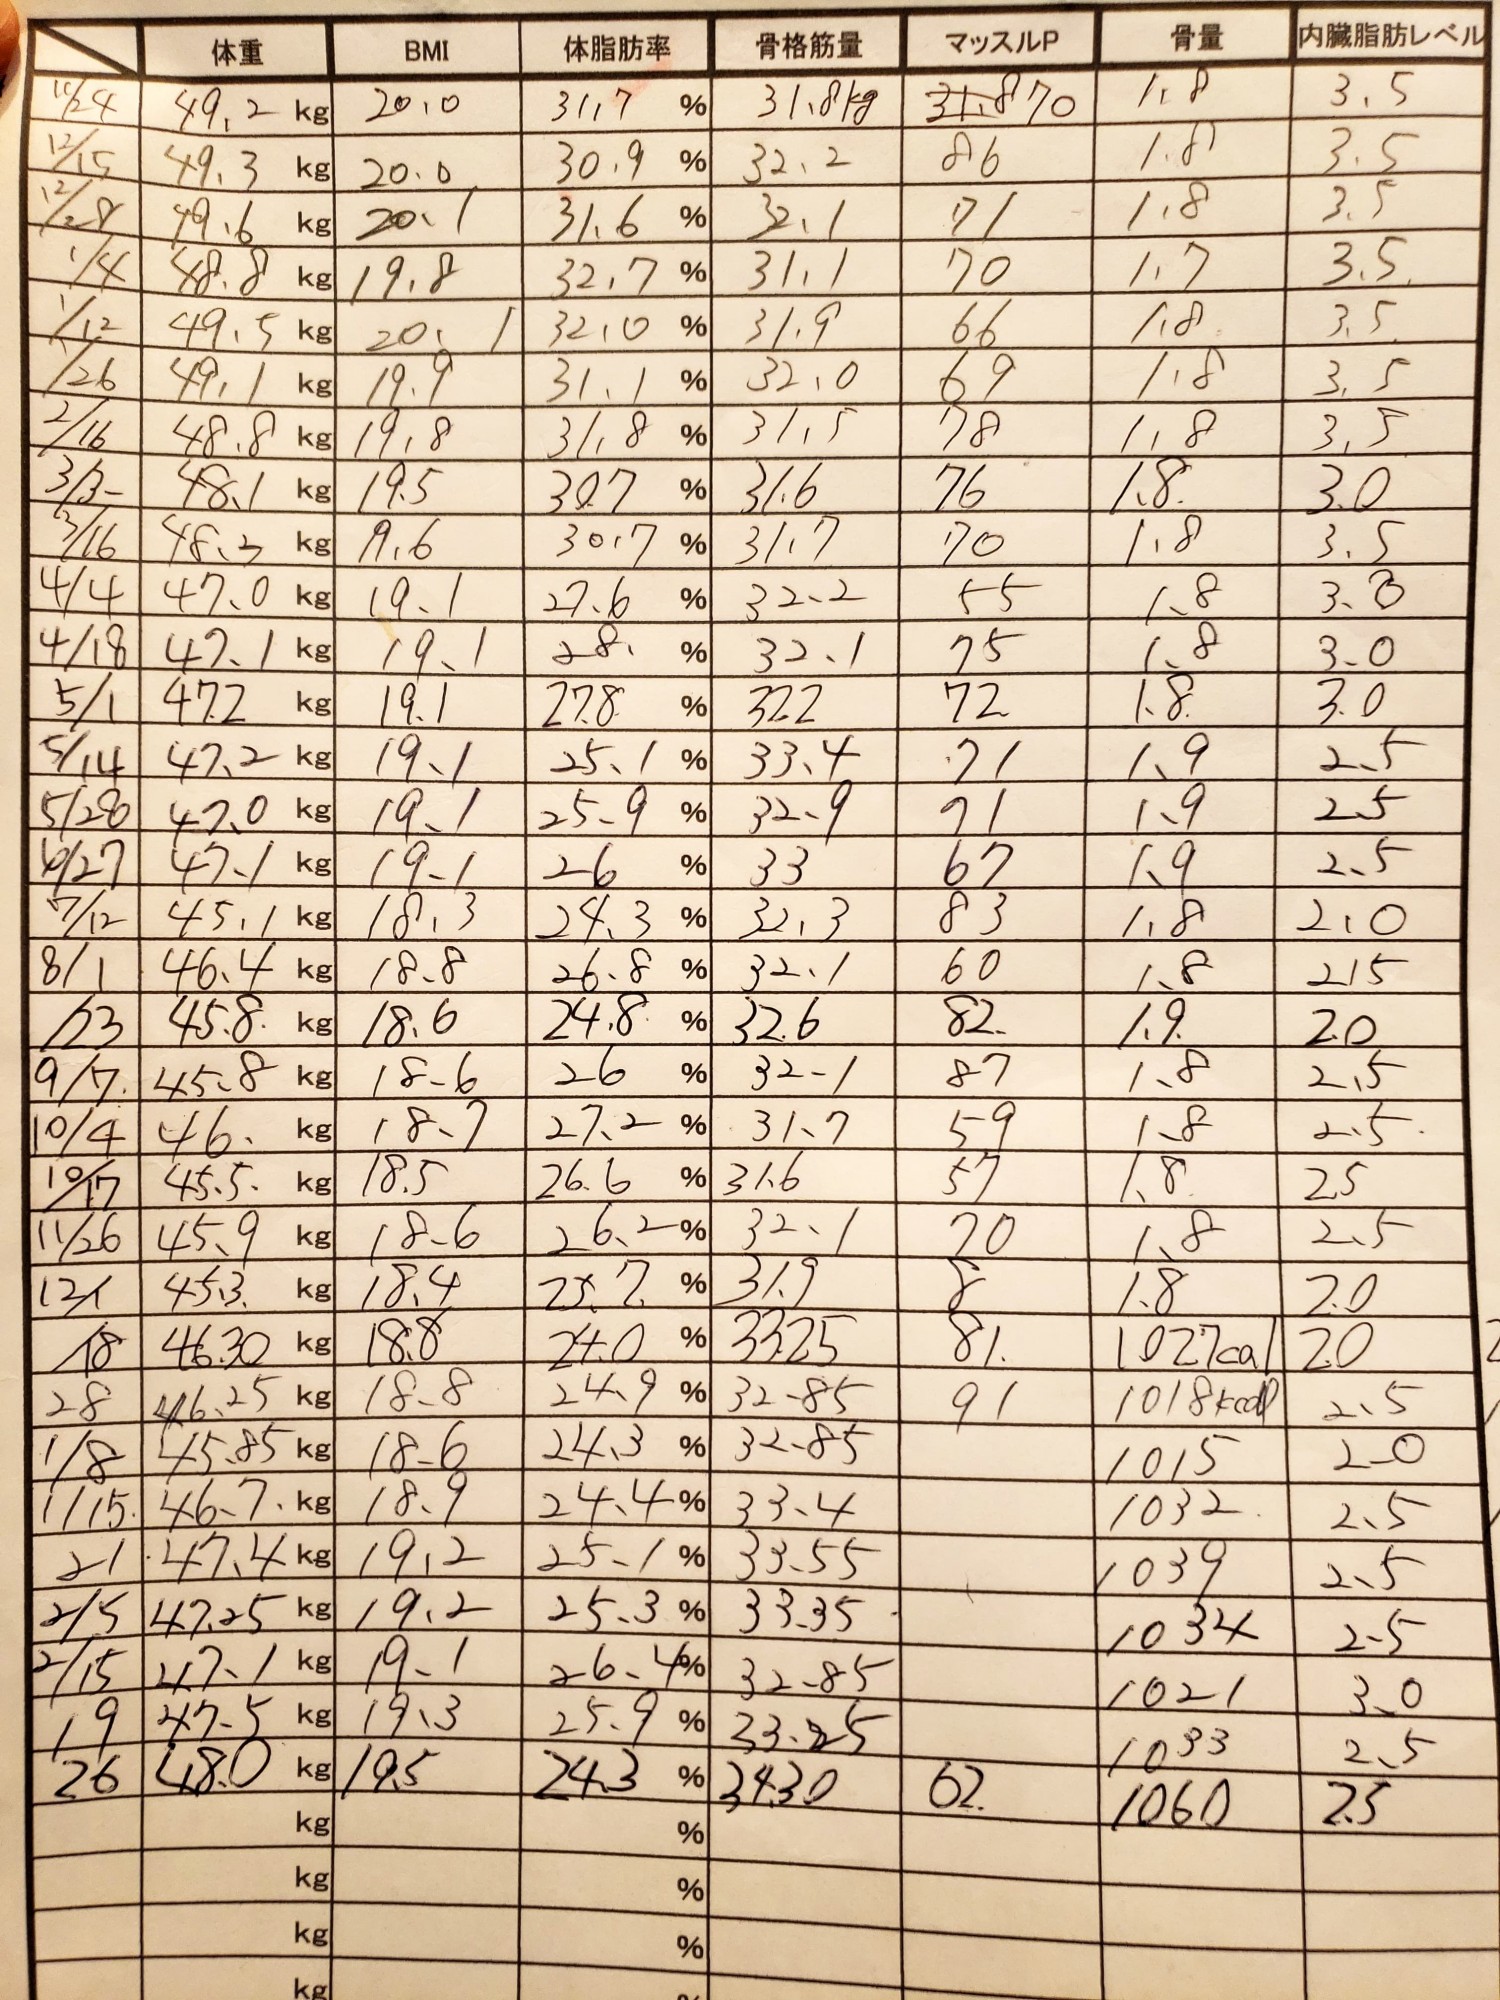 体重 BMI 体脂肪率 骨格筋量 マッスルP 骨量 内臓脂肪レベル
11/24 49.2 kg 20.0 31.7 % 31.8kg 31.8 70 1.8 3.5
12/15 49.3 kg 20.0 30.9 % 32.2 86 1.8 3.5
12/28 49.6 kg 20.1 31.6 % 32.1 71 1.8 3.5
1/4 48.8 kg 19.8 32.7 % 31.1 70 1.7 3.5
1/12 49.5 kg 20.1 32.0 % 31.9 66 1.8 3.5
1/26 49.1 kg 19.9 31.1 % 32.0 69 1.8 3.5
2/16 48.8 kg 19.8 31.8 % 31.5 78 1.8 3.5
48.1 kg 19.5 30.7 % 31.6 76 1.8 3.0
3/16 kg 19.6 30.7 % 31.7 70 1.8 3.5
4/4 47.0 kg 19.1 27.6 % 32.2 55 1.8 3.0
4/18 47.1 kg 19.1 28. % 32.1 75 1.8 3.0
5/1 47.2 kg 19.1 27.8 % 32.2 72 1.8 3.0
5/14 47.2 kg 19.1 25.1 % 33.4 71 1.9 2.5
5/28 47.0 kg 19.1 25.9 % 32.9 71 1.9 2.5
6/27 47.1 kg 19.1 26 % 33 67 1.9 2.5
7/12 45.1 kg 18.3 24.3 % 32.3 83 1.8 2.0
8/1 46.4 kg 18.8 26.8 % 32.1 60 1.8 2.5
/23 45.8 kg 18.6 24.8 % 32.6 82. 1.9 2.0
9/7 45.8 kg 18.6 26 % 32.1 87 1.8 2.5
10/4 46. kg 18.7 27.2 % 31.7 59 1.8 2.5
10/17 45.5 kg 18.5 26.6 % 31.6 57 1.8 2.5
11/26 45.9 kg 18.6 26.2 % 32.1 70 1.8 2.5
12/1 45.3 kg 18.4 25.7 % 31.9 8 1.8 2.0
/18 46.30 kg 18.8 24.0 % 33.25 81. 1027cal 2.0
28 46.25 kg 18.8 24.9 % 32.85 91 1018kcal 2.5
1/8 45.85 kg 18.6 24.3 % 32.85 1015 2.0
1/15 46.7 kg 18.9 24.4 % 33.4 1032 2.5
21 47.4 kg 19.2 25.1 % 33.55 1039 2.5
2/5 47.25 kg 19.2 25.3 % 33.35 1034 2.5
2/15 47.1 kg 19.1 26.4 % 32.85 1021 3.0
19 47.5 kg 19.3 25.9 % 33.25 1033 2.5
26 48.0 kg 19.5 24.3 % 34.30 62. 1060 2.5
kg %
kg %
kg %
kg %